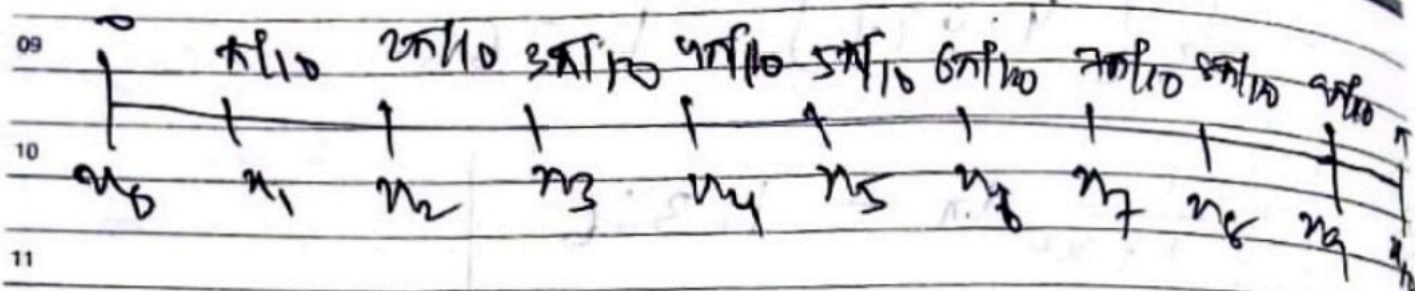 0 π/10 2π/10 3π/10 4π/10 5π/10 6π/10 7π/10 8π/10 9π/10 π
09
10
x0 x1 x2 x3 x4 x5 x6 x7 x8 x9 x10
11